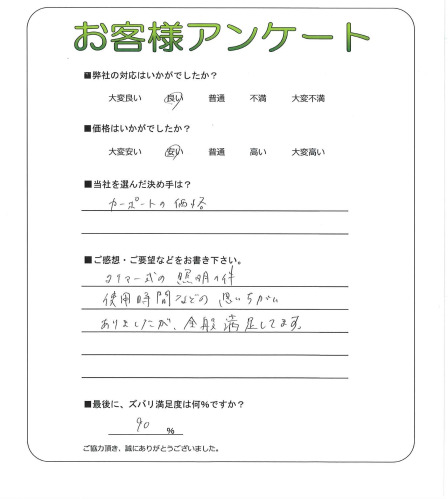 お客様アンケート
■弊社の対応はいかがでしたか？
大変良い 良い 普通 不満 大変不満
■価格はいかがでしたか？
大変安い 安い 普通 高い 大変高い
■当社を選んだ決め手は？
カーポートの価格
■ご感想・ご要望などをお書き下さい。
タイマー式の照明の件
使用時間などの思いちがい
ありましたが、全般満足してます。
■最後に、ズバリ満足度は何%ですか？
90 %
ご協力頂き、誠にありがとうございました。